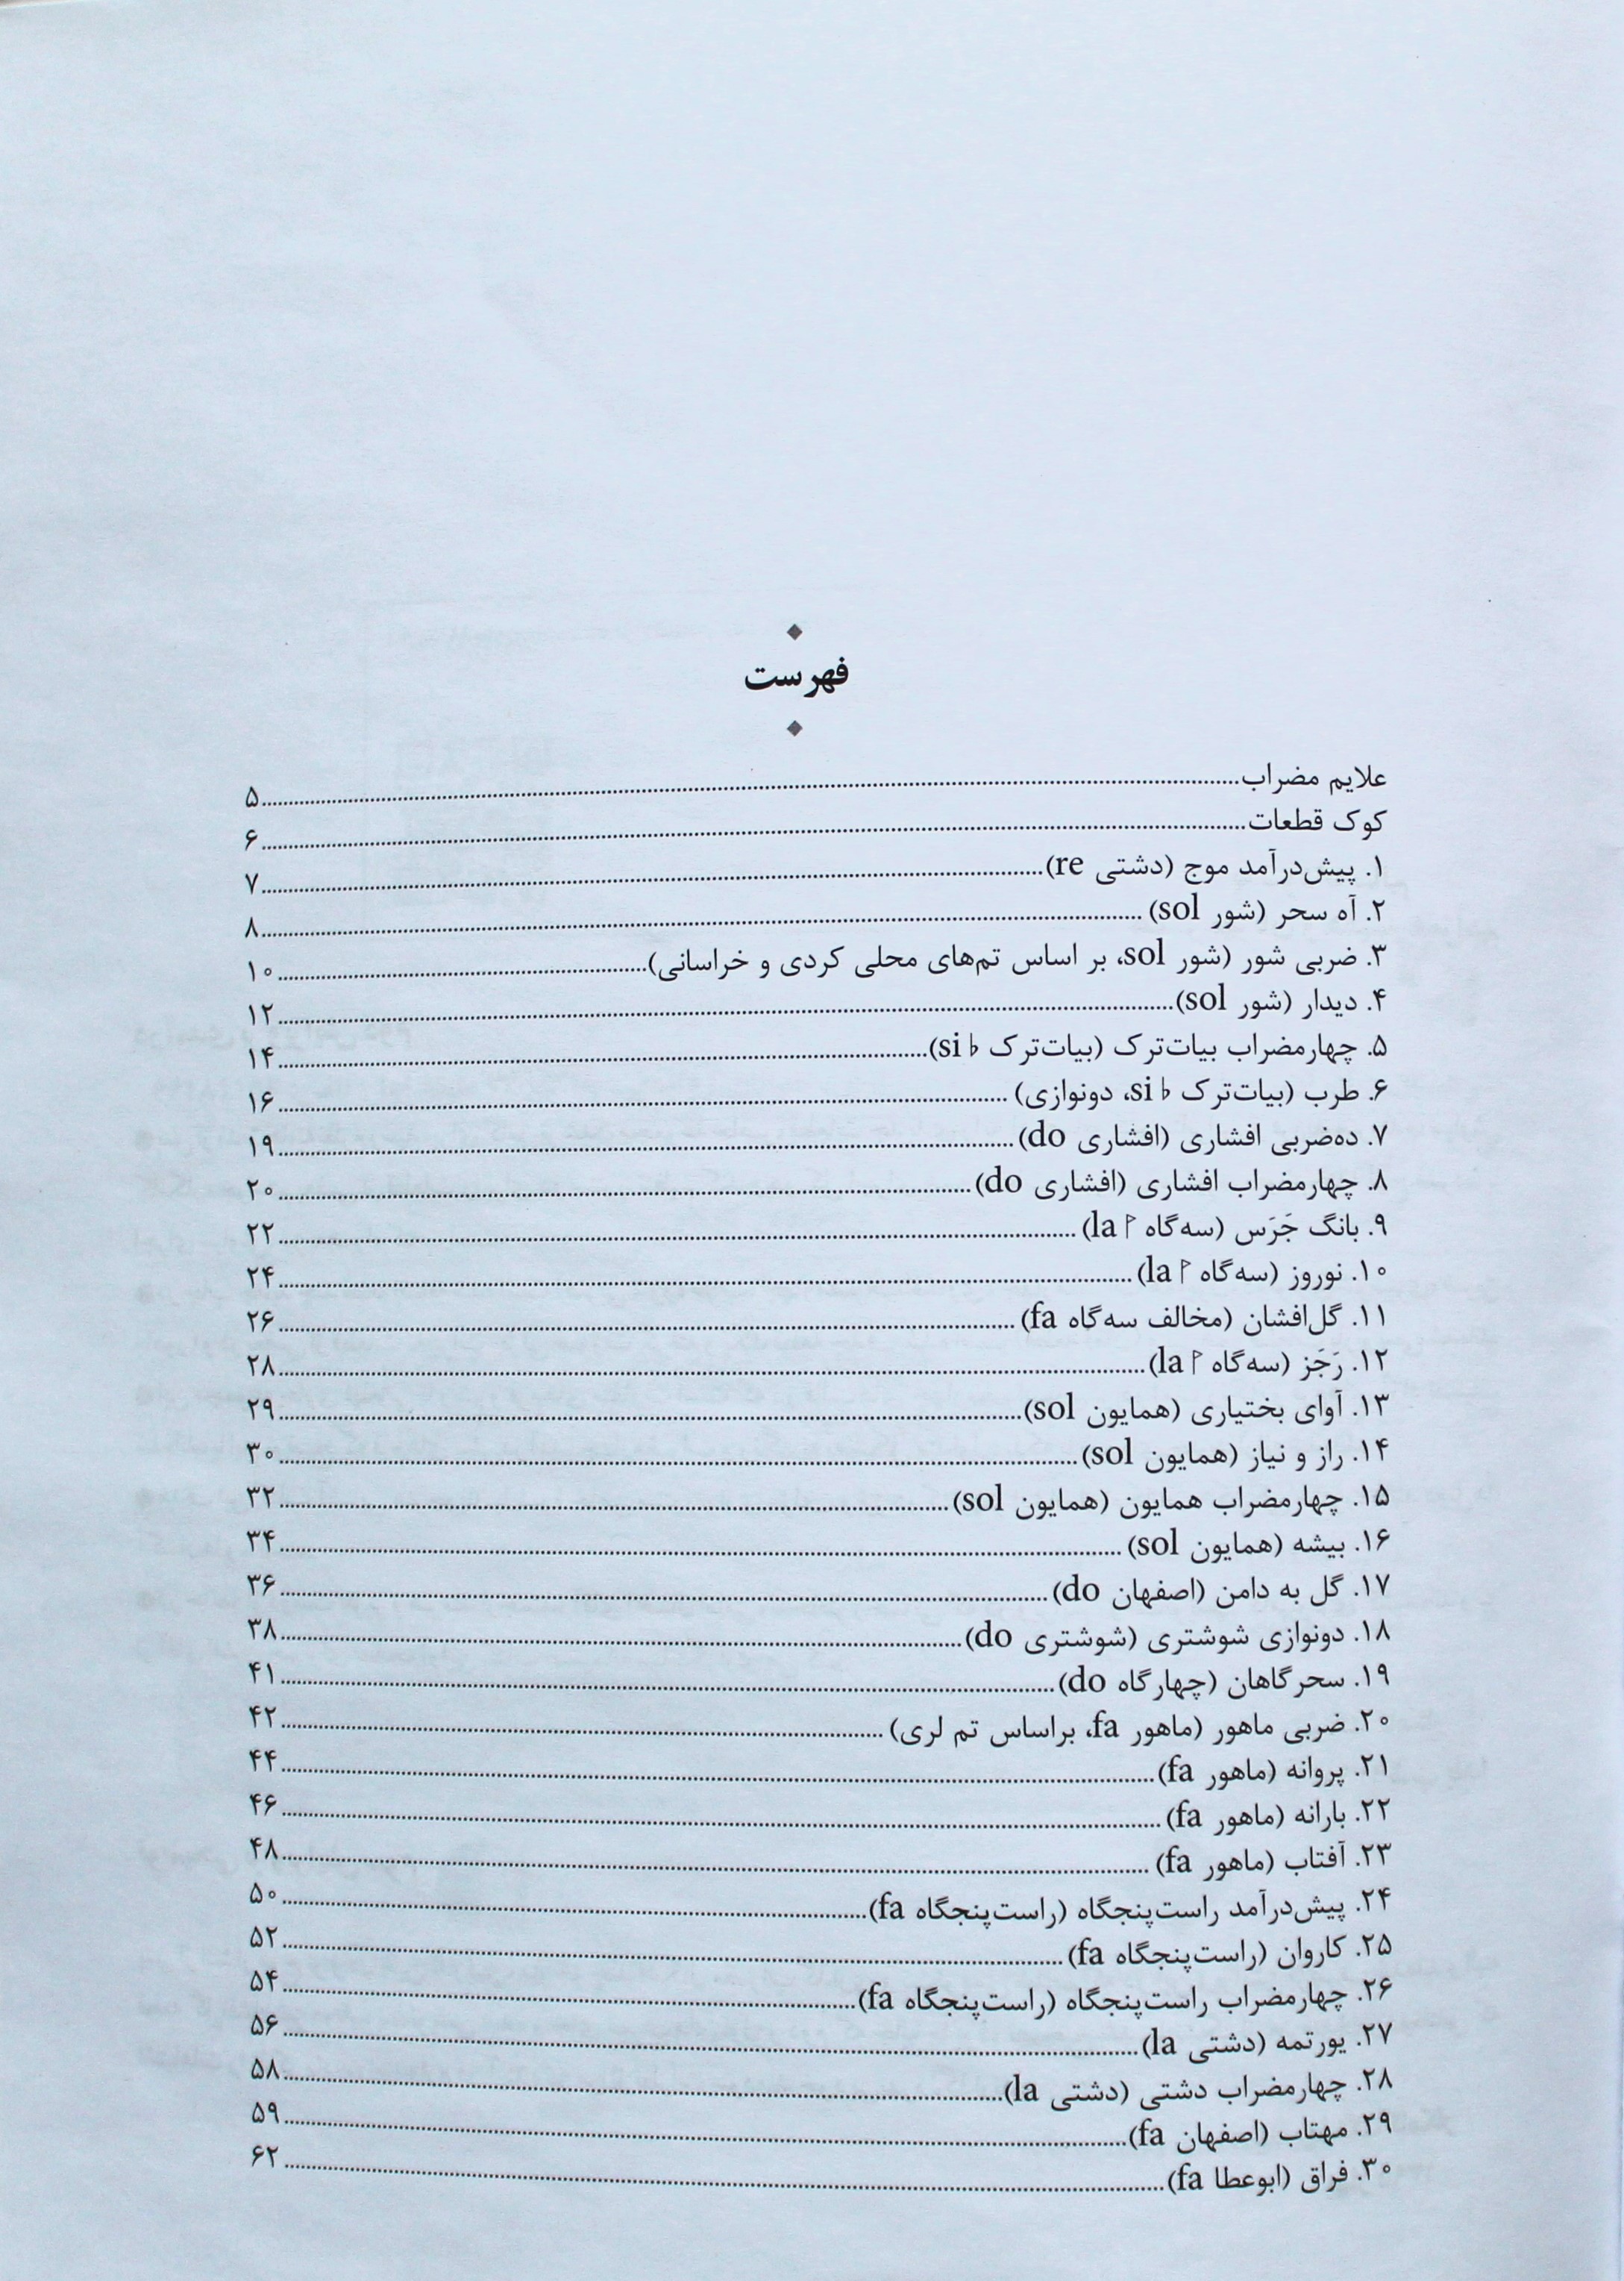 فهرست
علایم مضراب ........ ۵
کوک قطعات ........ ۶
۱. پیش‌درآمد موج (دشتی re) ........ ۷
۲. آه سحر (شور sol) ........ ۸
۳. ضربی شور (شور sol، بر اساس تم‌های محلی کردی و خراسانی) ........ ۱۰
۴. دیدار (شور sol) ........ ۱۲
۵. چهارمضراب بیات‌ترک (بیات‌ترک si♭) ........ ۱۴
۶. طرب (بیات‌ترک si♭، دونوازی) ........ ۱۶
۷. ده‌ضربی افشاری (افشاری do) ........ ۱۹
۸. چهارمضراب افشاری (افشاری do) ........ ۲۰
۹. بانگ جَرَس (سه‌گاه la) ........ ۲۲
۱۰. نوروز (سه‌گاه la) ........ ۲۴
۱۱. گل‌افشان (مخالف سه‌گاه fa) ........ ۲۶
۱۲. رَجَز (سه‌گاه la) ........ ۲۸
۱۳. آوای بختیاری (همایون sol) ........ ۲۹
۱۴. راز و نیاز (همایون sol) ........ ۳۰
۱۵. چهارمضراب همایون (همایون sol) ........ ۳۲
۱۶. بیشه (همایون sol) ........ ۳۴
۱۷. گل به دامن (اصفهان do) ........ ۳۶
۱۸. دونوازی شوشتری (شوشتری do) ........ ۳۸
۱۹. سحرگاهان (چهارگاه do) ........ ۴۱
۲۰. ضربی ماهور (ماهور fa، براساس تم لری) ........ ۴۲
۲۱. پروانه (ماهور fa) ........ ۴۴
۲۲. بارانه (ماهور fa) ........ ۴۶
۲۳. آفتاب (ماهور fa) ........ ۴۸
۲۴. پیش‌درآمد راست‌پنجگاه (راست‌پنجگاه fa) ........ ۵۰
۲۵. کاروان (راست‌پنجگاه fa) ........ ۵۲
۲۶. چهارمضراب راست‌پنجگاه (راست‌پنجگاه fa) ........ ۵۴
۲۷. یورتمه (دشتی la) ........ ۵۶
۲۸. چهارمضراب دشتی (دشتی la) ........ ۵۸
۲۹. مهتاب (اصفهان fa) ........ ۵۹
۳۰. فراق (ابوعطا fa) ........ ۶۲